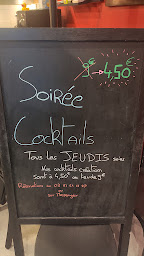 9€ → 4,50€
Soirée
Cocktails
Tous les JEUDIS soirs
Nos cocktails création
sont à 4,50€ au lieu de 9€
Réservation au
ou
sur Messenger